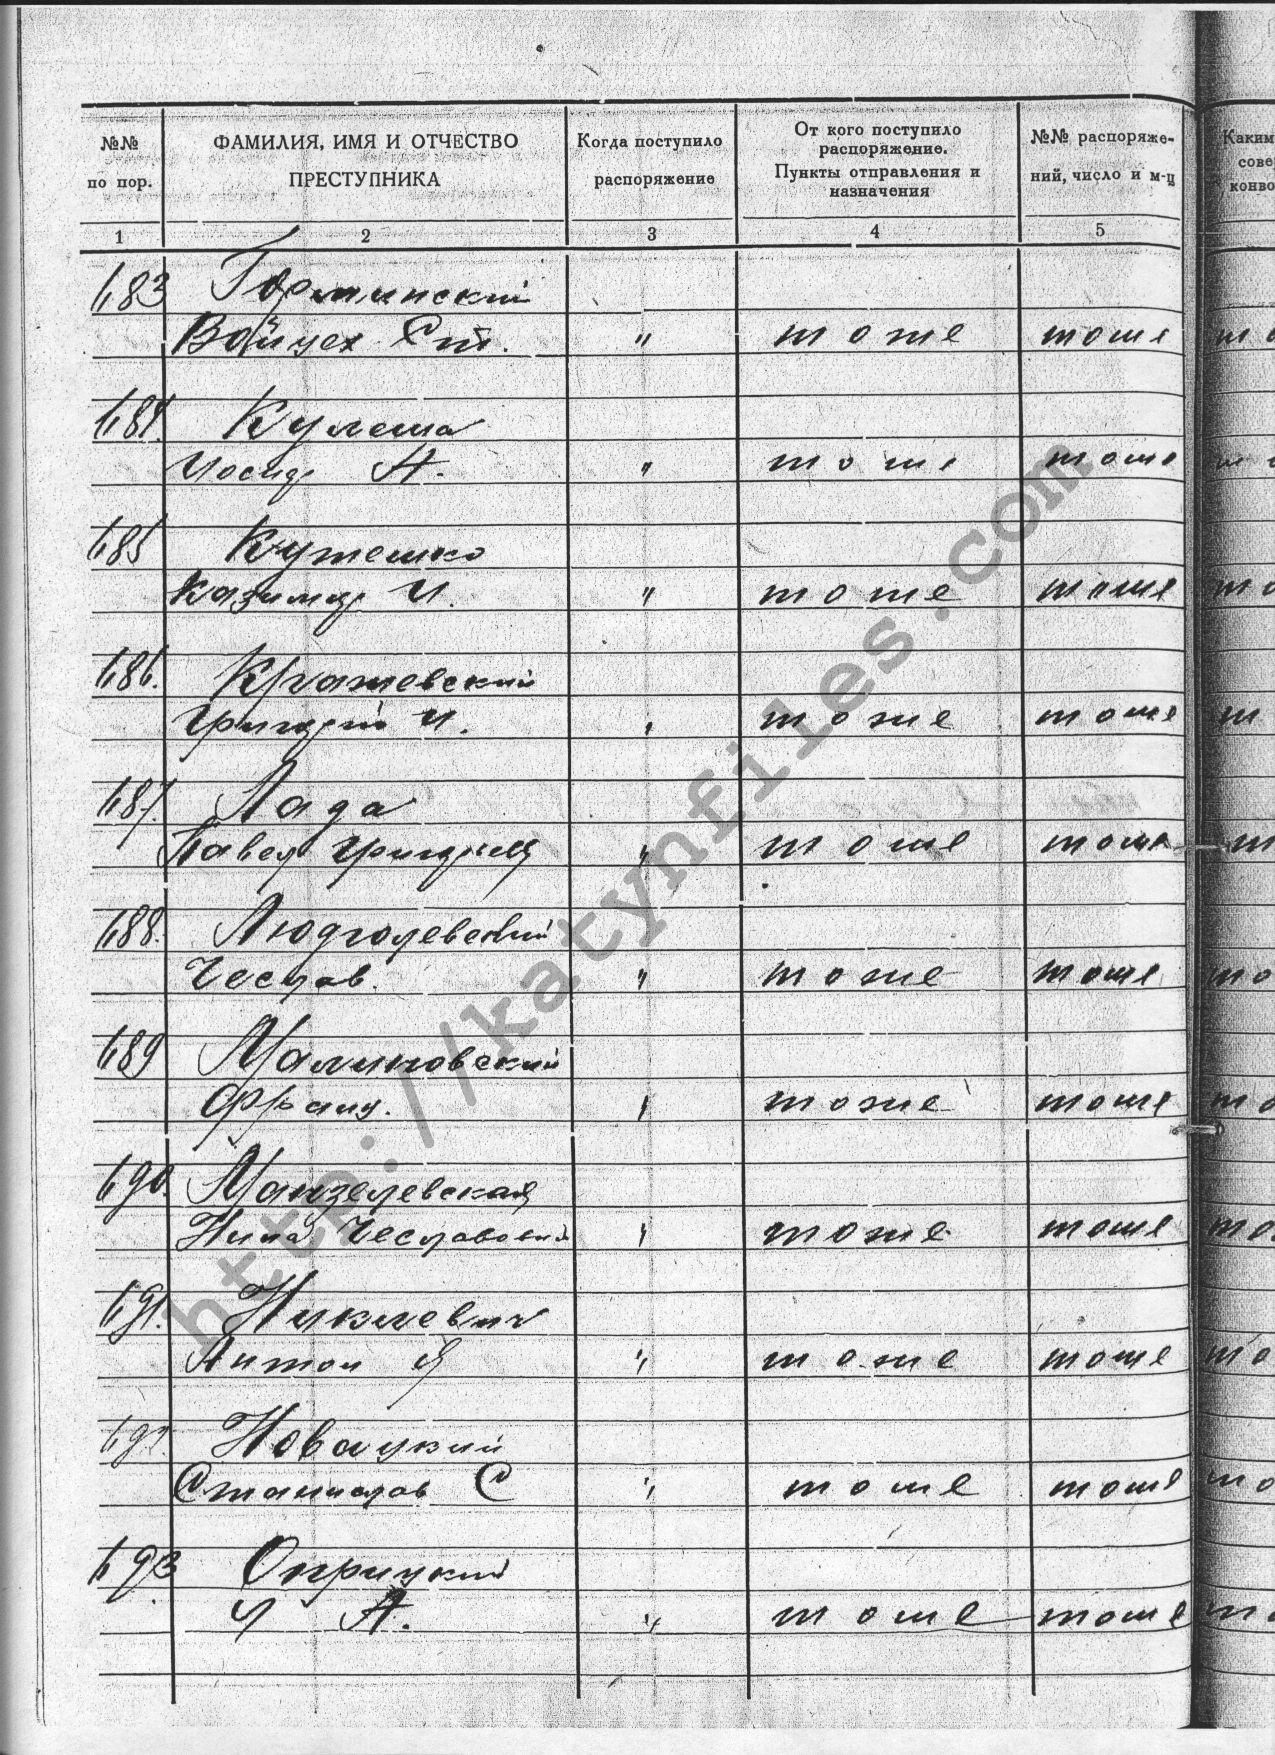 №№ по пор. | ФАМИЛИЯ, ИМЯ И ОТЧЕСТВО ПРЕСТУПНИКА | Когда поступило распоряжение | От кого поступило распоряжение. Пункты отправления и назначения | №№ распоряжений, число и м-ц | Каким сове конво
1 | 2 | 3 | 4 | 5
683 Горлинский
Войцех Ст. " тоже тоже то
684. Кулеша
Иосиф А. " тоже тоже то
685 Кутешко
Казимир И. " тоже тоже то
686. Крашевский
Григорий И. " тоже тоже т
687. Лада
Павел Григорьев " тоже тоже т
688. Людголевский
Чеслав. " тоже тоже то
689 Малиновский
Франц. " тоже тоже то
690. Манзелевская
Нина Чеславовна " тоже тоже то
691. Никлевич
Антон Я " тоже тоже то
692. Новацкий
Станислав С " тоже тоже то
693. Оприцкий
И А. " тоже тоже то
http://katynfiles.com